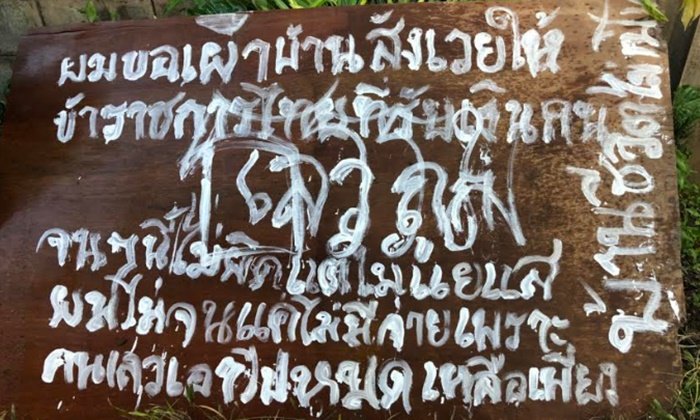 ผมขอเผาบ้านสังเวยให้
ข้าราชการไทยที่รับเงินคน
เลว
จนๆนี้ไม่ผิดแต่ไม่แยแส
ผมไม่จนแต่ไม่มีจ่ายเพราะ
คนเลวเอาไปหมดเหลือเพียง
บ้านชีวิต